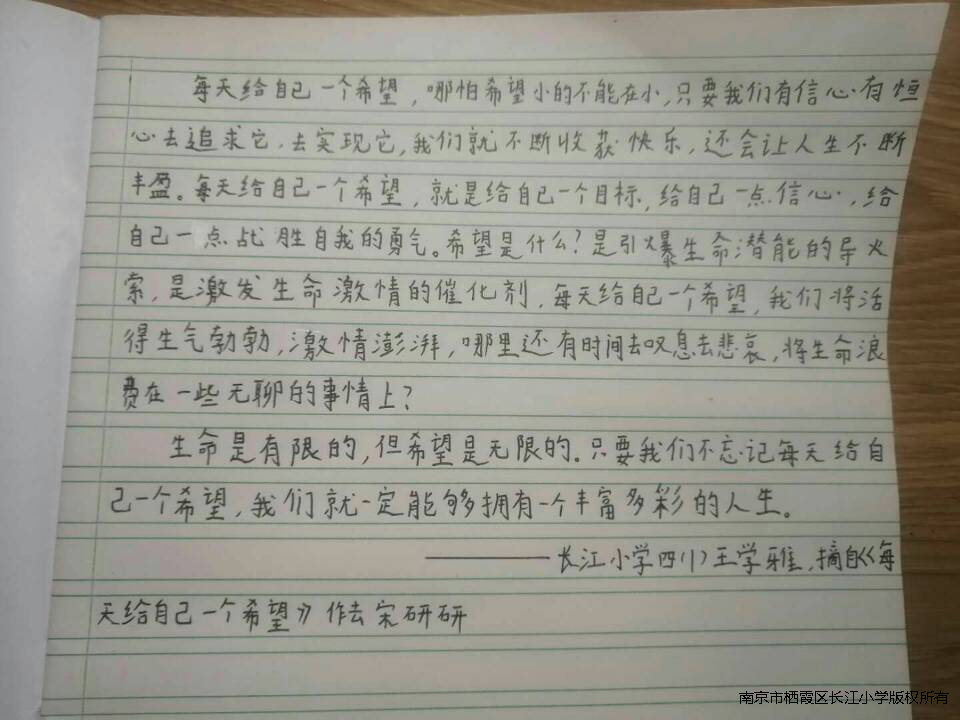 每天给自己一个希望，哪怕希望小的不能在小，只要我们有信心有恒
心去追求它，去实现它，我们就不断收获快乐，还会让人生不断
丰盈。每天给自己一个希望，就是给自己一个目标，给自己一点信心，给
自己一点战胜自我的勇气。希望是什么？是引爆生命潜能的导火
索，是激发生命激情的催化剂，每天给自己一个希望，我们将活
得生气勃勃，激情澎湃，哪里还有时间去叹息去悲哀，将生命浪
费在一些无聊的事情上？
生命是有限的，但希望是无限的。只要我们不忘记每天给自
己一个希望，我们就一定能够拥有一个丰富多彩的人生。
————长江小学四(1)王学雅，摘自《每
天给自己一个希望》作去宋研研
南京市栖霞区长江小学版权所有